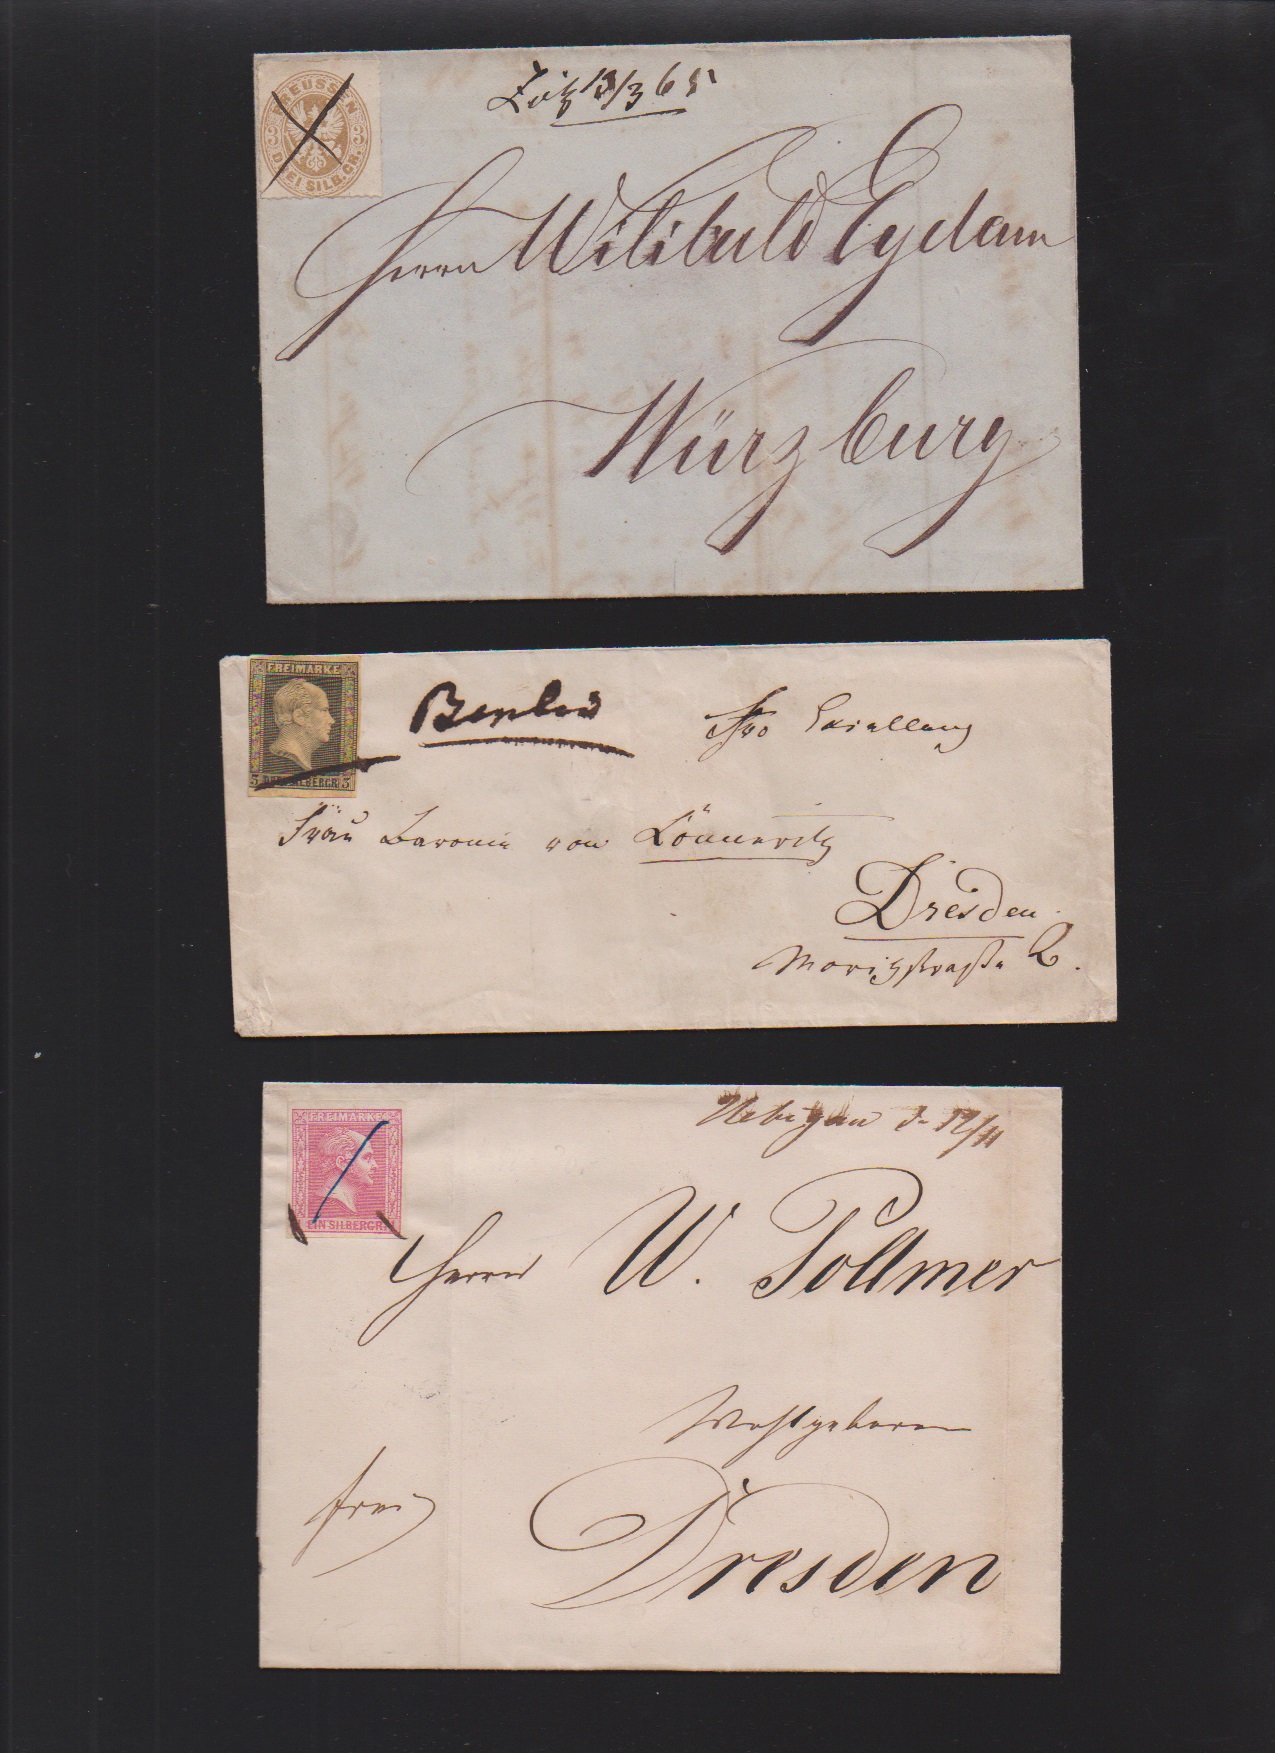 PREUSSEN
DREI SILB.GR.
Zeitz 13/3 65
Herrn Wilibald Eydam
Würzburg
FREIMARKE
3 DREI SILBERGR. 3
Ihro Excellenz
Frau Baronin von Könneritz
Dresden
Moritzstraße 2.
FREIMARKE
1 EIN SILBERGR. 1
Uebigau d. 12/11
Herrn W. Pollmer
Wohlgeboren
frei
Dresden